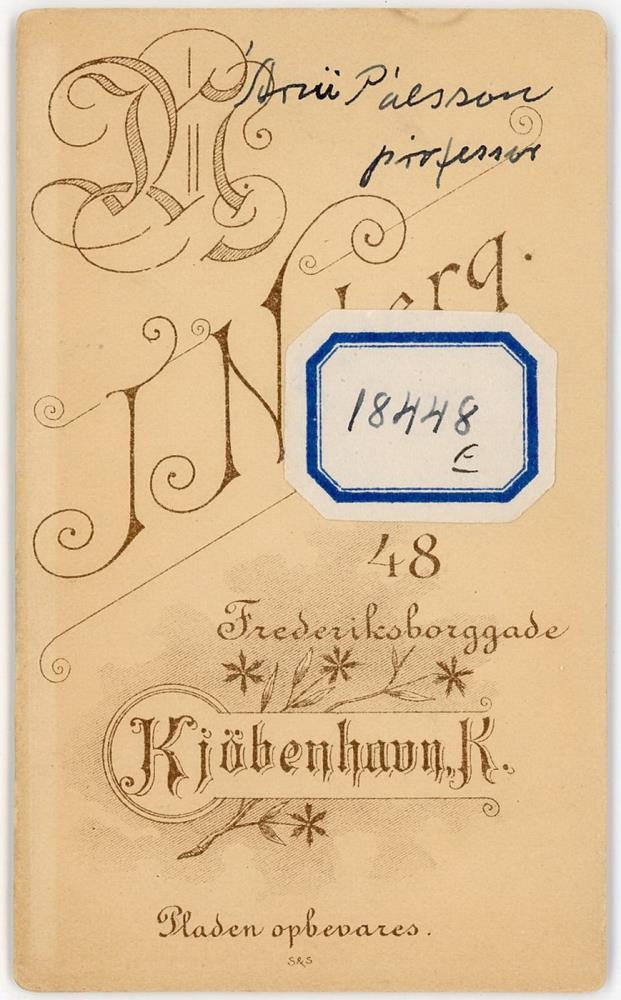 Árni Pálsson
professor
M
J N
erg.
18448
E
48
Frederiksborggade
Kjöbenhavn, K.
Pladen opbevares.
S&S